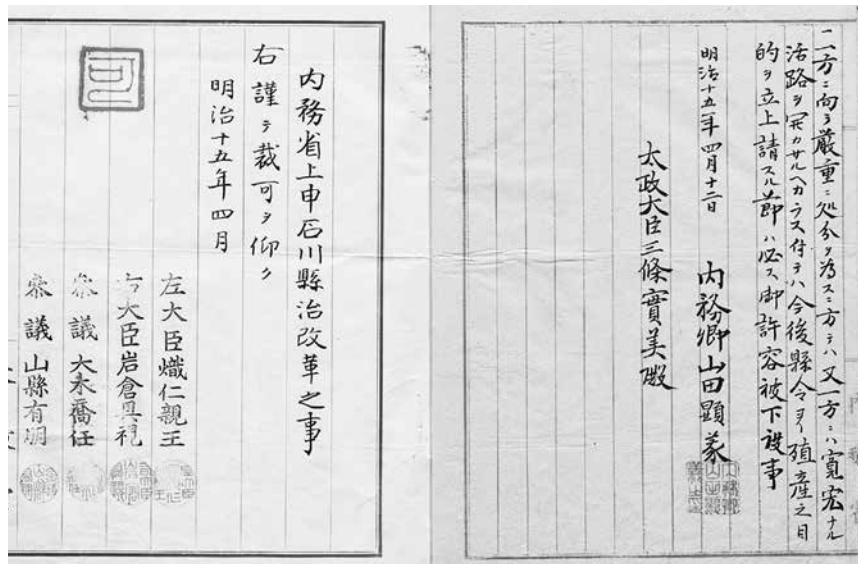 二一方ニ向テ厳重ニ処分ヲ為ス一方ニハ又一方ニハ寛宏ナル
活路ヲ開カサルヘカラス付テハ今後縣令ヨリ殖産之目
的ヲ立上請スル節ハ必ス御許容被下度事
明治十五年四月十二日
内務卿山田顕義
太政大臣三條實美殿
可
内務省上申石川縣治改革之事
右謹テ裁可ヲ仰ク
明治十五年四月
左大臣熾仁親王
右大臣岩倉具視
参議大木喬任
参議山縣有朋